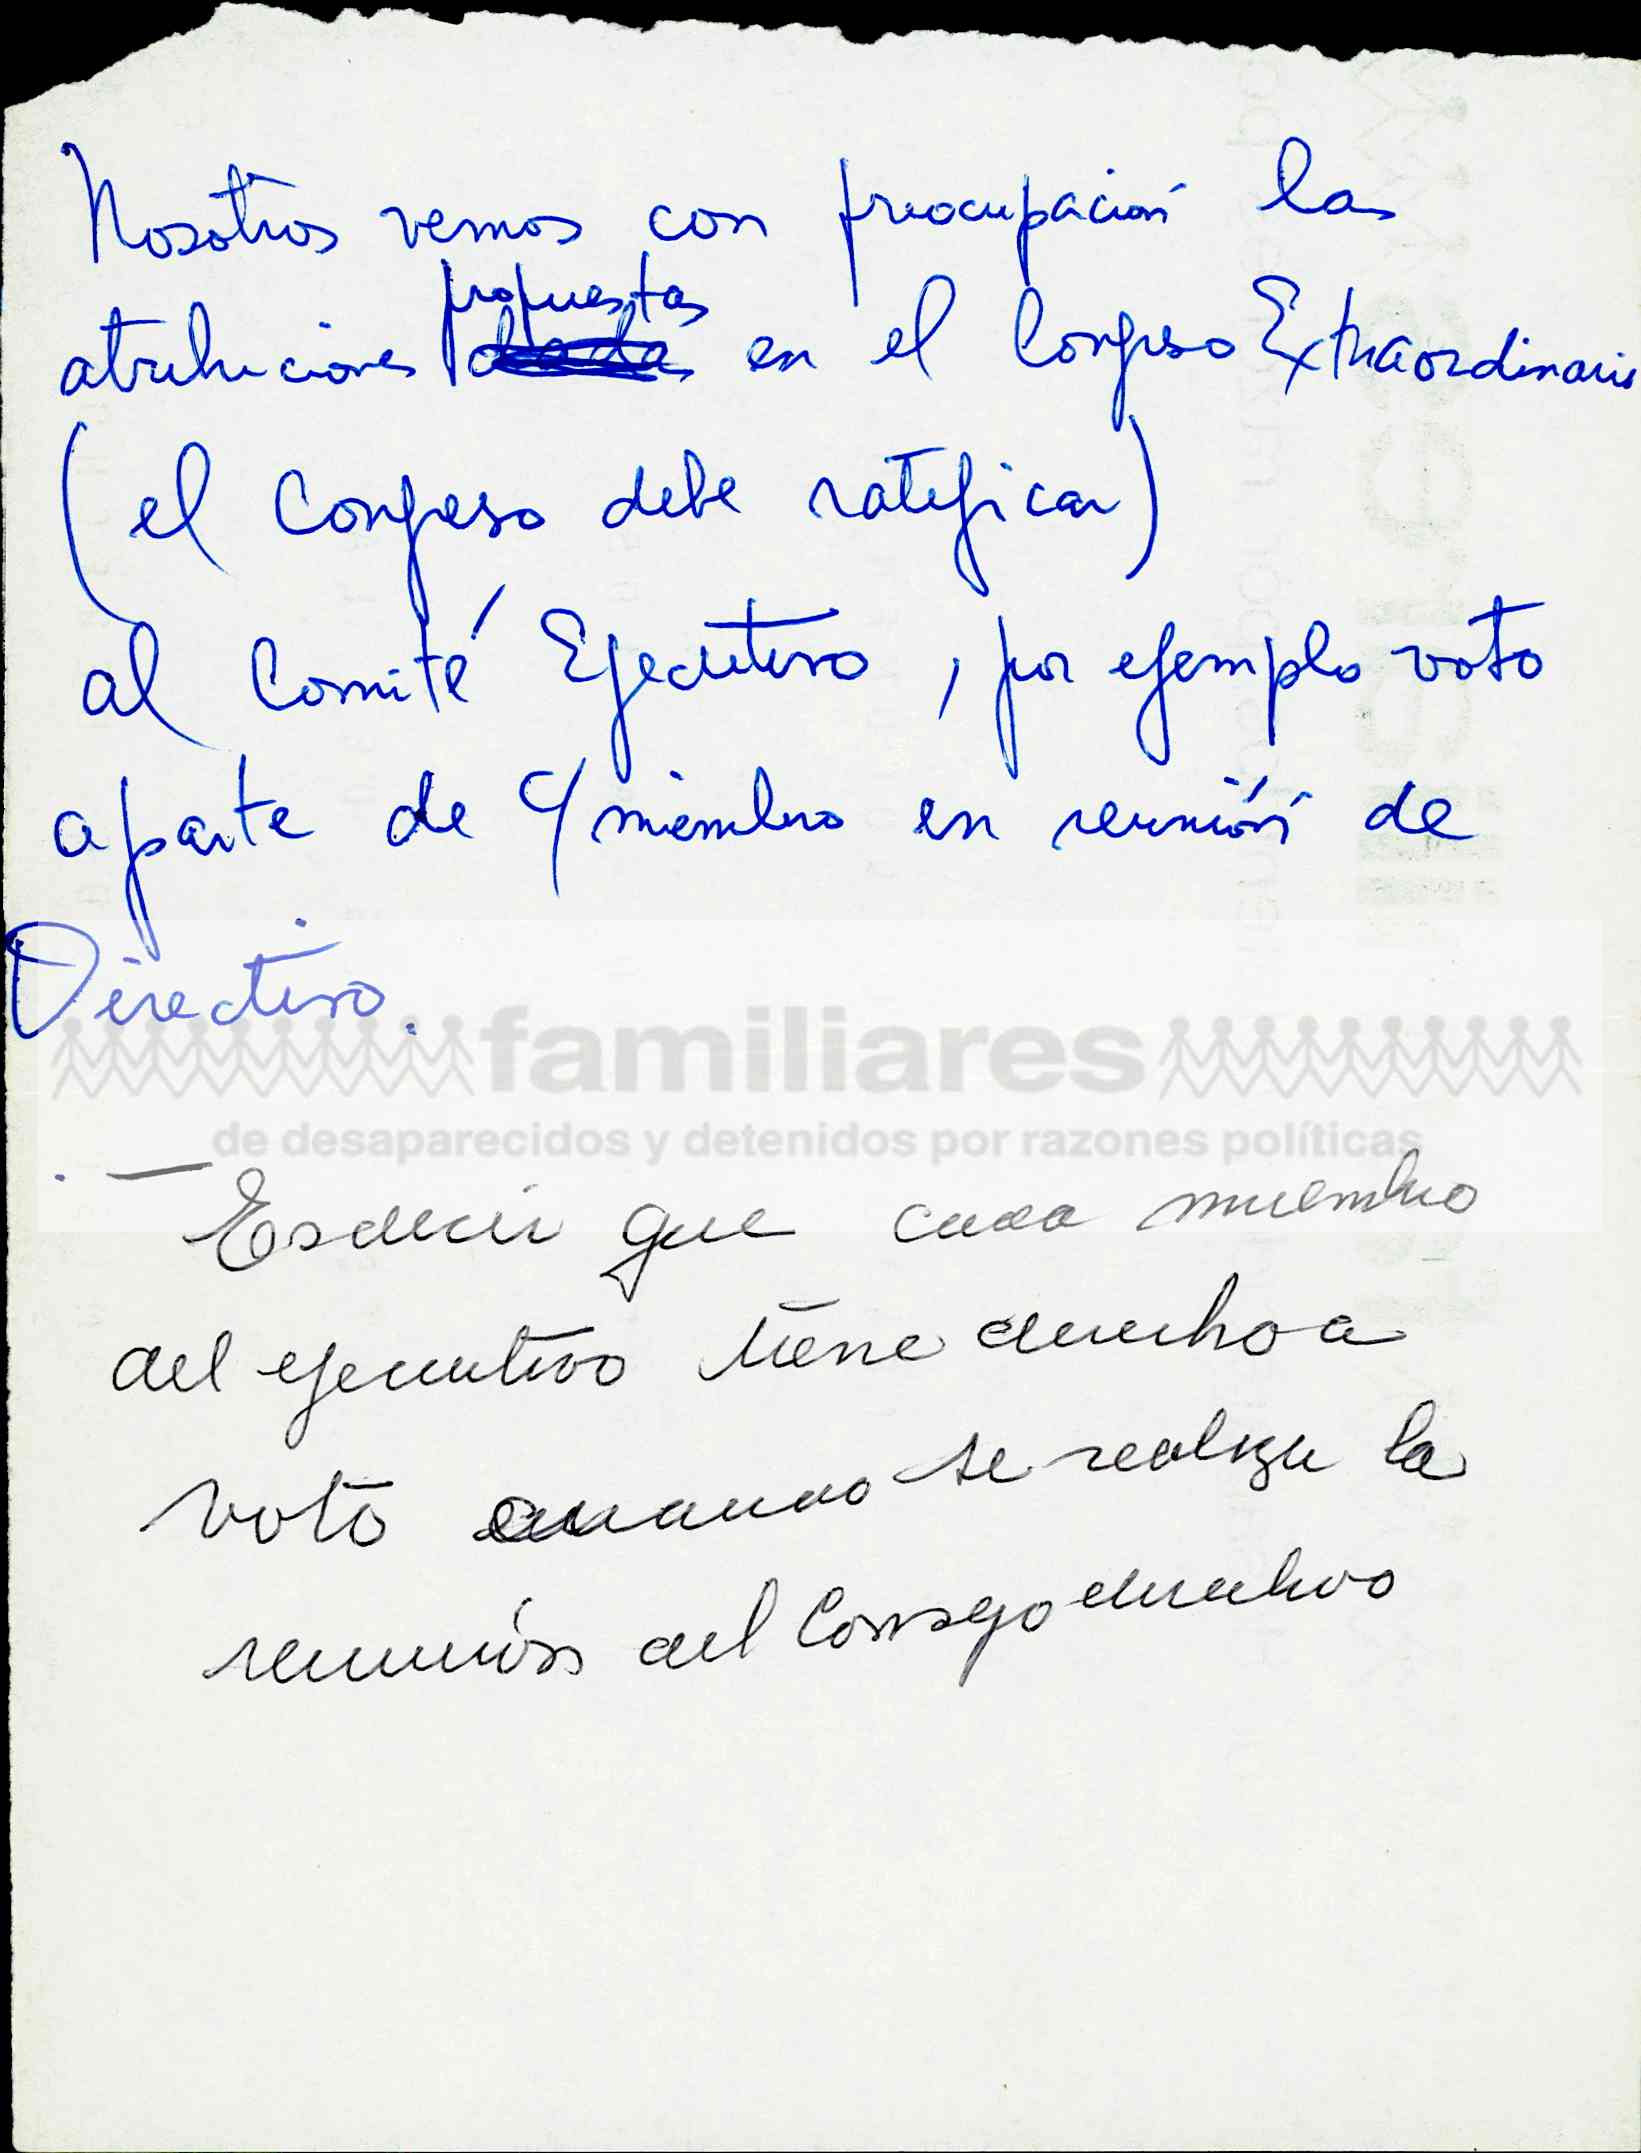 Nosotros vemos con preocupación las
propuestas
atribuciones dadas en el Congreso Extraordinario
(el Congreso debe ratificar)
al Comité Ejecutivo, por ejemplo voto
aparte de c/ miembro en reunión de
Directivo.
familiares
de desaparecidos y detenidos por razones políticas
- Es decir que cada miembro
del ejecutivo tiene derecho a
voto cuando se realize la
reunión del Consejo directivo